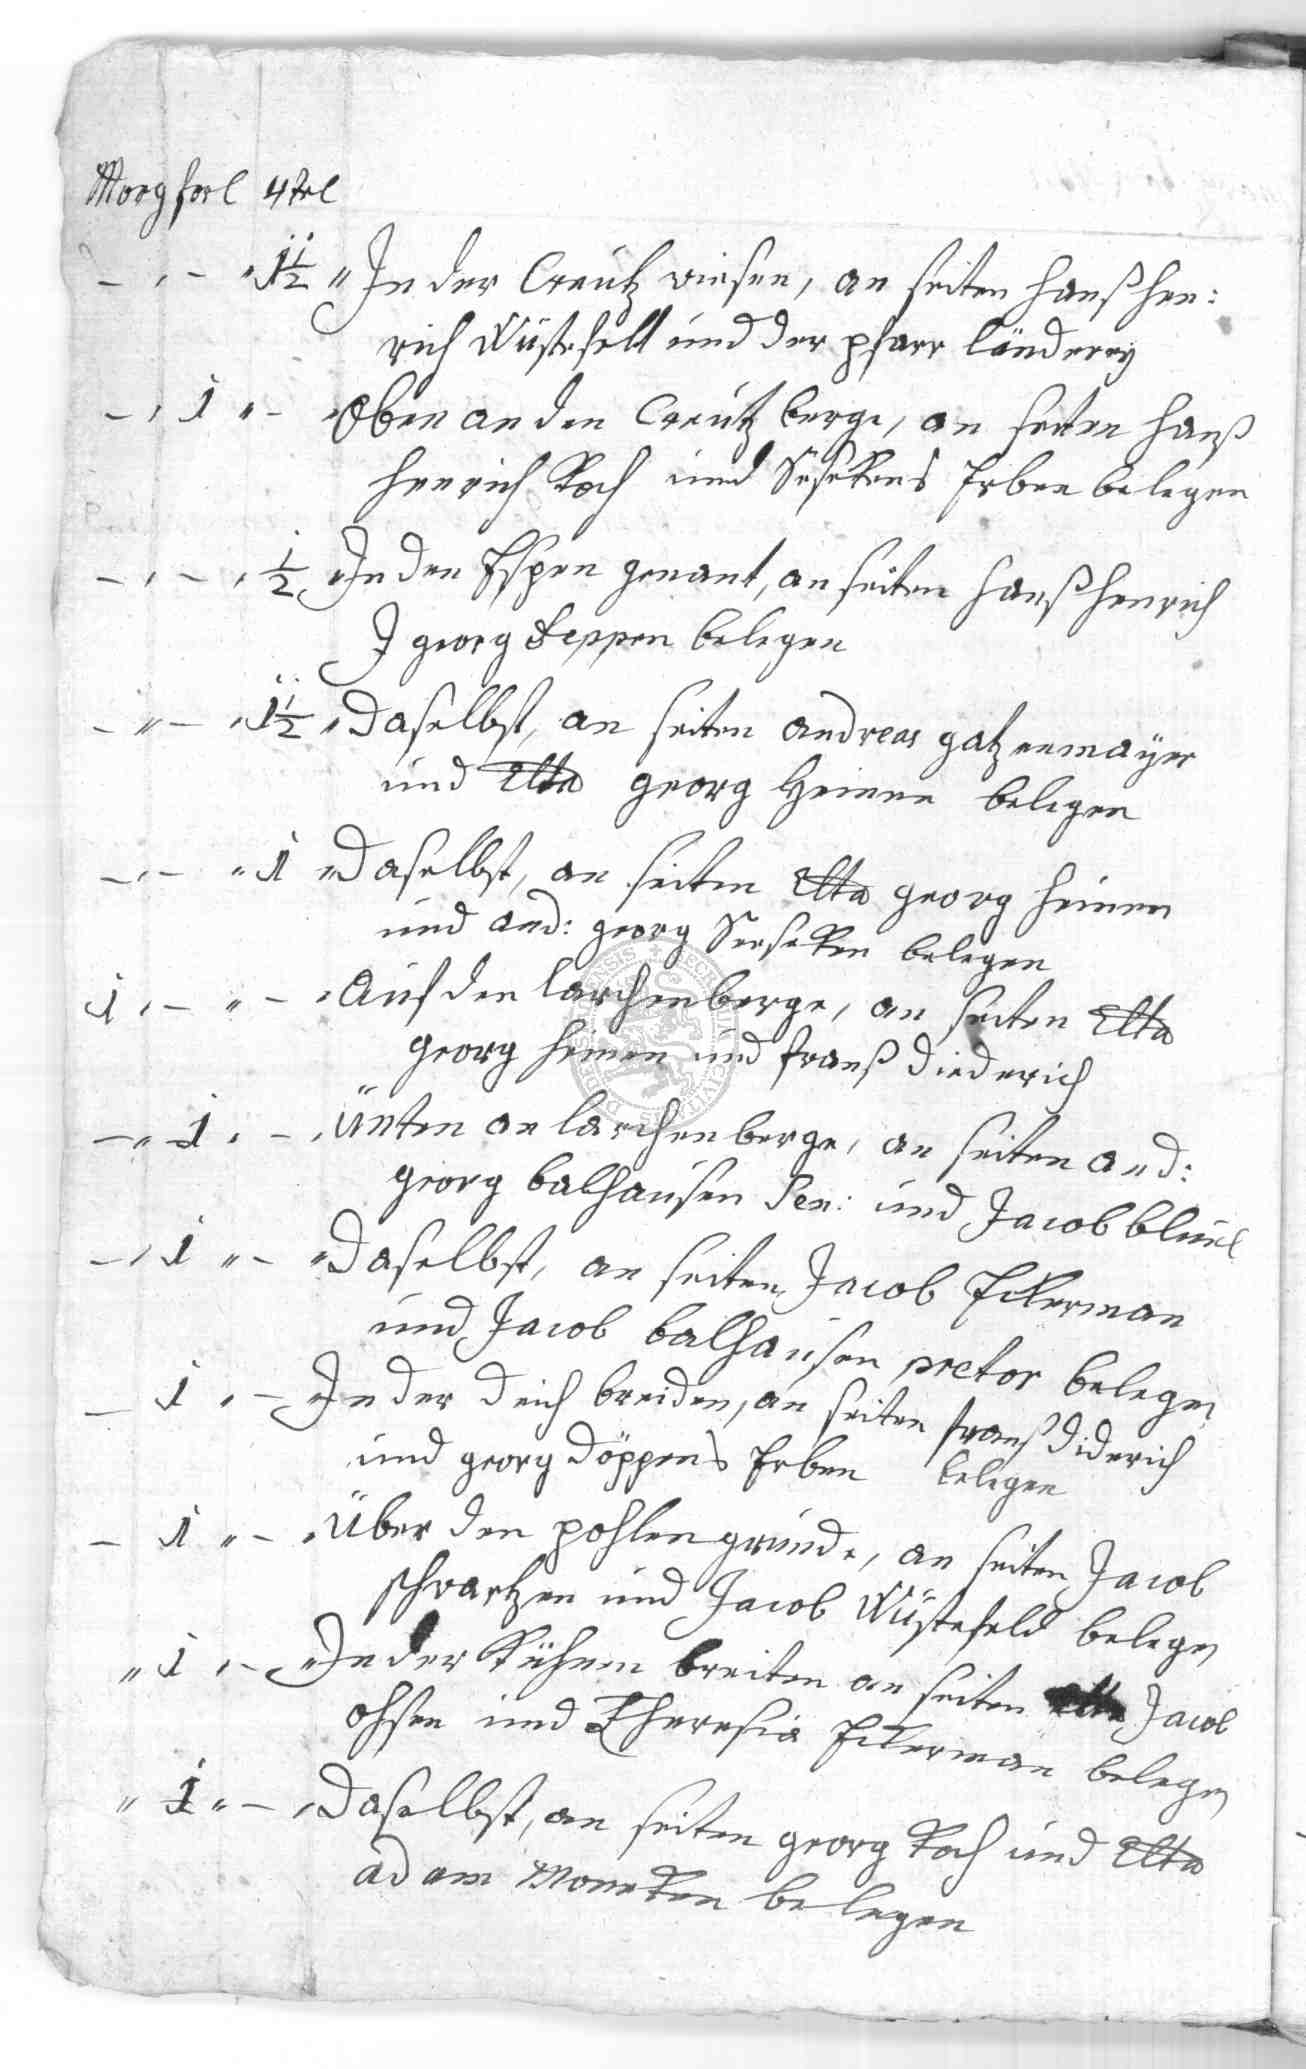 Morg forl 4trl
– „ – „ 1½ „ In der Creütz wiesen, an seiten Hanß Hen:
rich Wüstefelt und der pfarr länderey
– „ 1 „ – „ Oben an den Creütz berge, an seiten Hanß
Henrich Koch und Erben belegen
– „ – „ ½ „ In den Espen genant, an seiten Hanß Henrich
J georg Deppen belegen
– „ – „ 1½ „ Daselbst, an seiten andreas gatzenmayer
und georg Heinen belegen
– „ – „ 1 „ Daselbst, an seiten georg Heinen
und and: georg belegen
1 „ – „ – „ Auf den larchenberge, an seiten
georg Heinen und Franß Diederich
– „ 1 „ – „ Ünten an larchenberge, an seiten and:
georg balhausen Sen: und Jacob
– „ 1 „ – „ Daselbst, an seiten Jacob Eckerman
und Jacob balhausen pretor belegen
– 1 „ – „ In der Deich breiden, an seiten Franß Diderich
und georg Döppens Erben belegen
– 1 „ – „ Über den pohlen grunde, an seiten Jacob
schwartzen und Jacob Wüstefeld belegen
„ 1 „ – „ In der Kühnen breiten an seiten Jacob
ohsen und Theresia Eckerman belegen
„ 1 „ – „ Daselbst, an seiten georg Koch und
adam Moneken belegen